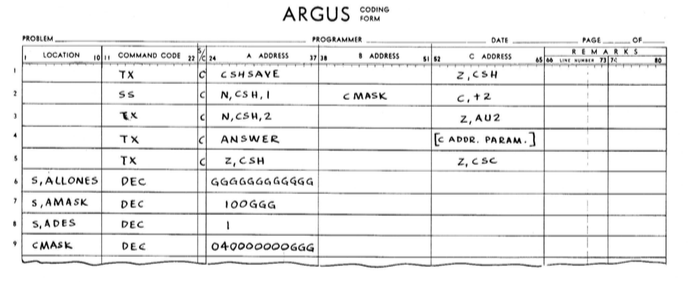 ARGUS CODING FORM
PROBLEM PROGRAMMER DATE PAGE OF
LOCATION COMMAND CODE S/C A ADDRESS B ADDRESS C ADDRESS REMARKS
1 10 11 22 24 37 38 51 52 65 66 LINE NUMBER 73 74 80
1 TX C CSHSAVE Z,CSH
2 SS C N,CSH,1 CMASK C,+2
3 TX C N,CSH,2 Z,AU2
4 TX C ANSWER [C ADDR. PARAM.]
5 TX C Z,CSH Z,CSC
6 S,ALLONES DEC GGGGGGGGGGGG
7 S,AMASK DEC 100GGG
8 S,ADES DEC 1
9 CMASK DEC 040000000GGG